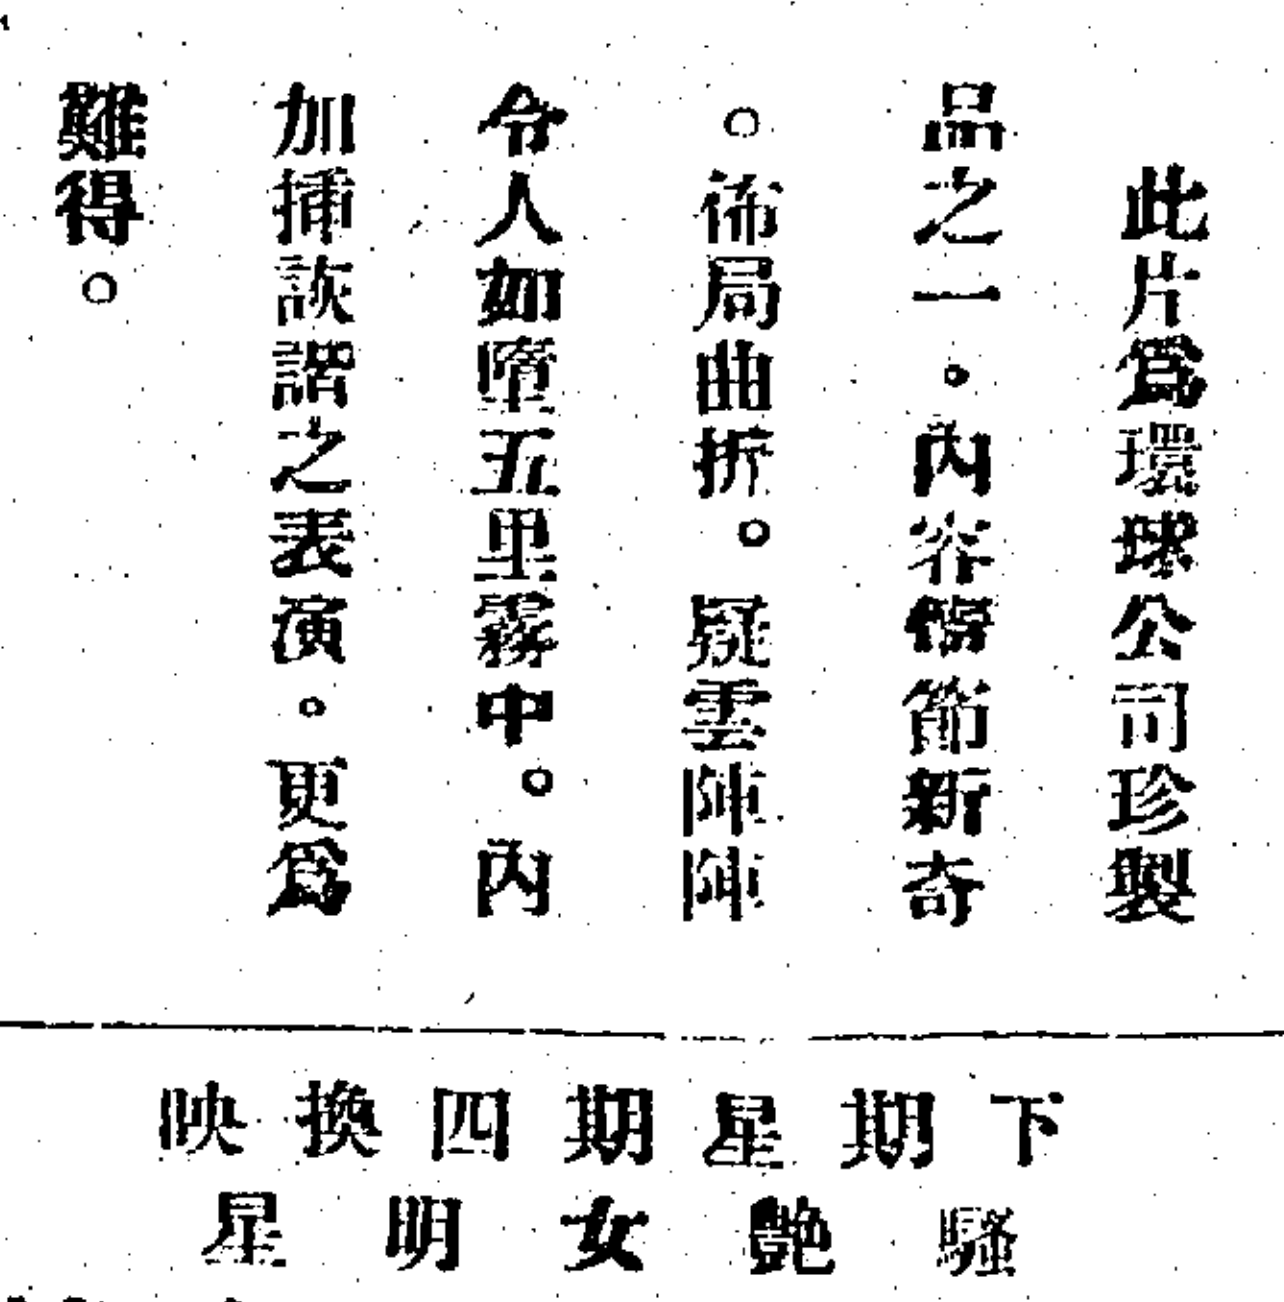 此片爲環球公司珍製
品之一。內容情節新奇
。佈局曲折。疑雲陣陣
令人如墮五里霧中。內
加揷詼諧之表演。更爲
難得。
下期星期四換映
騷艷女明星